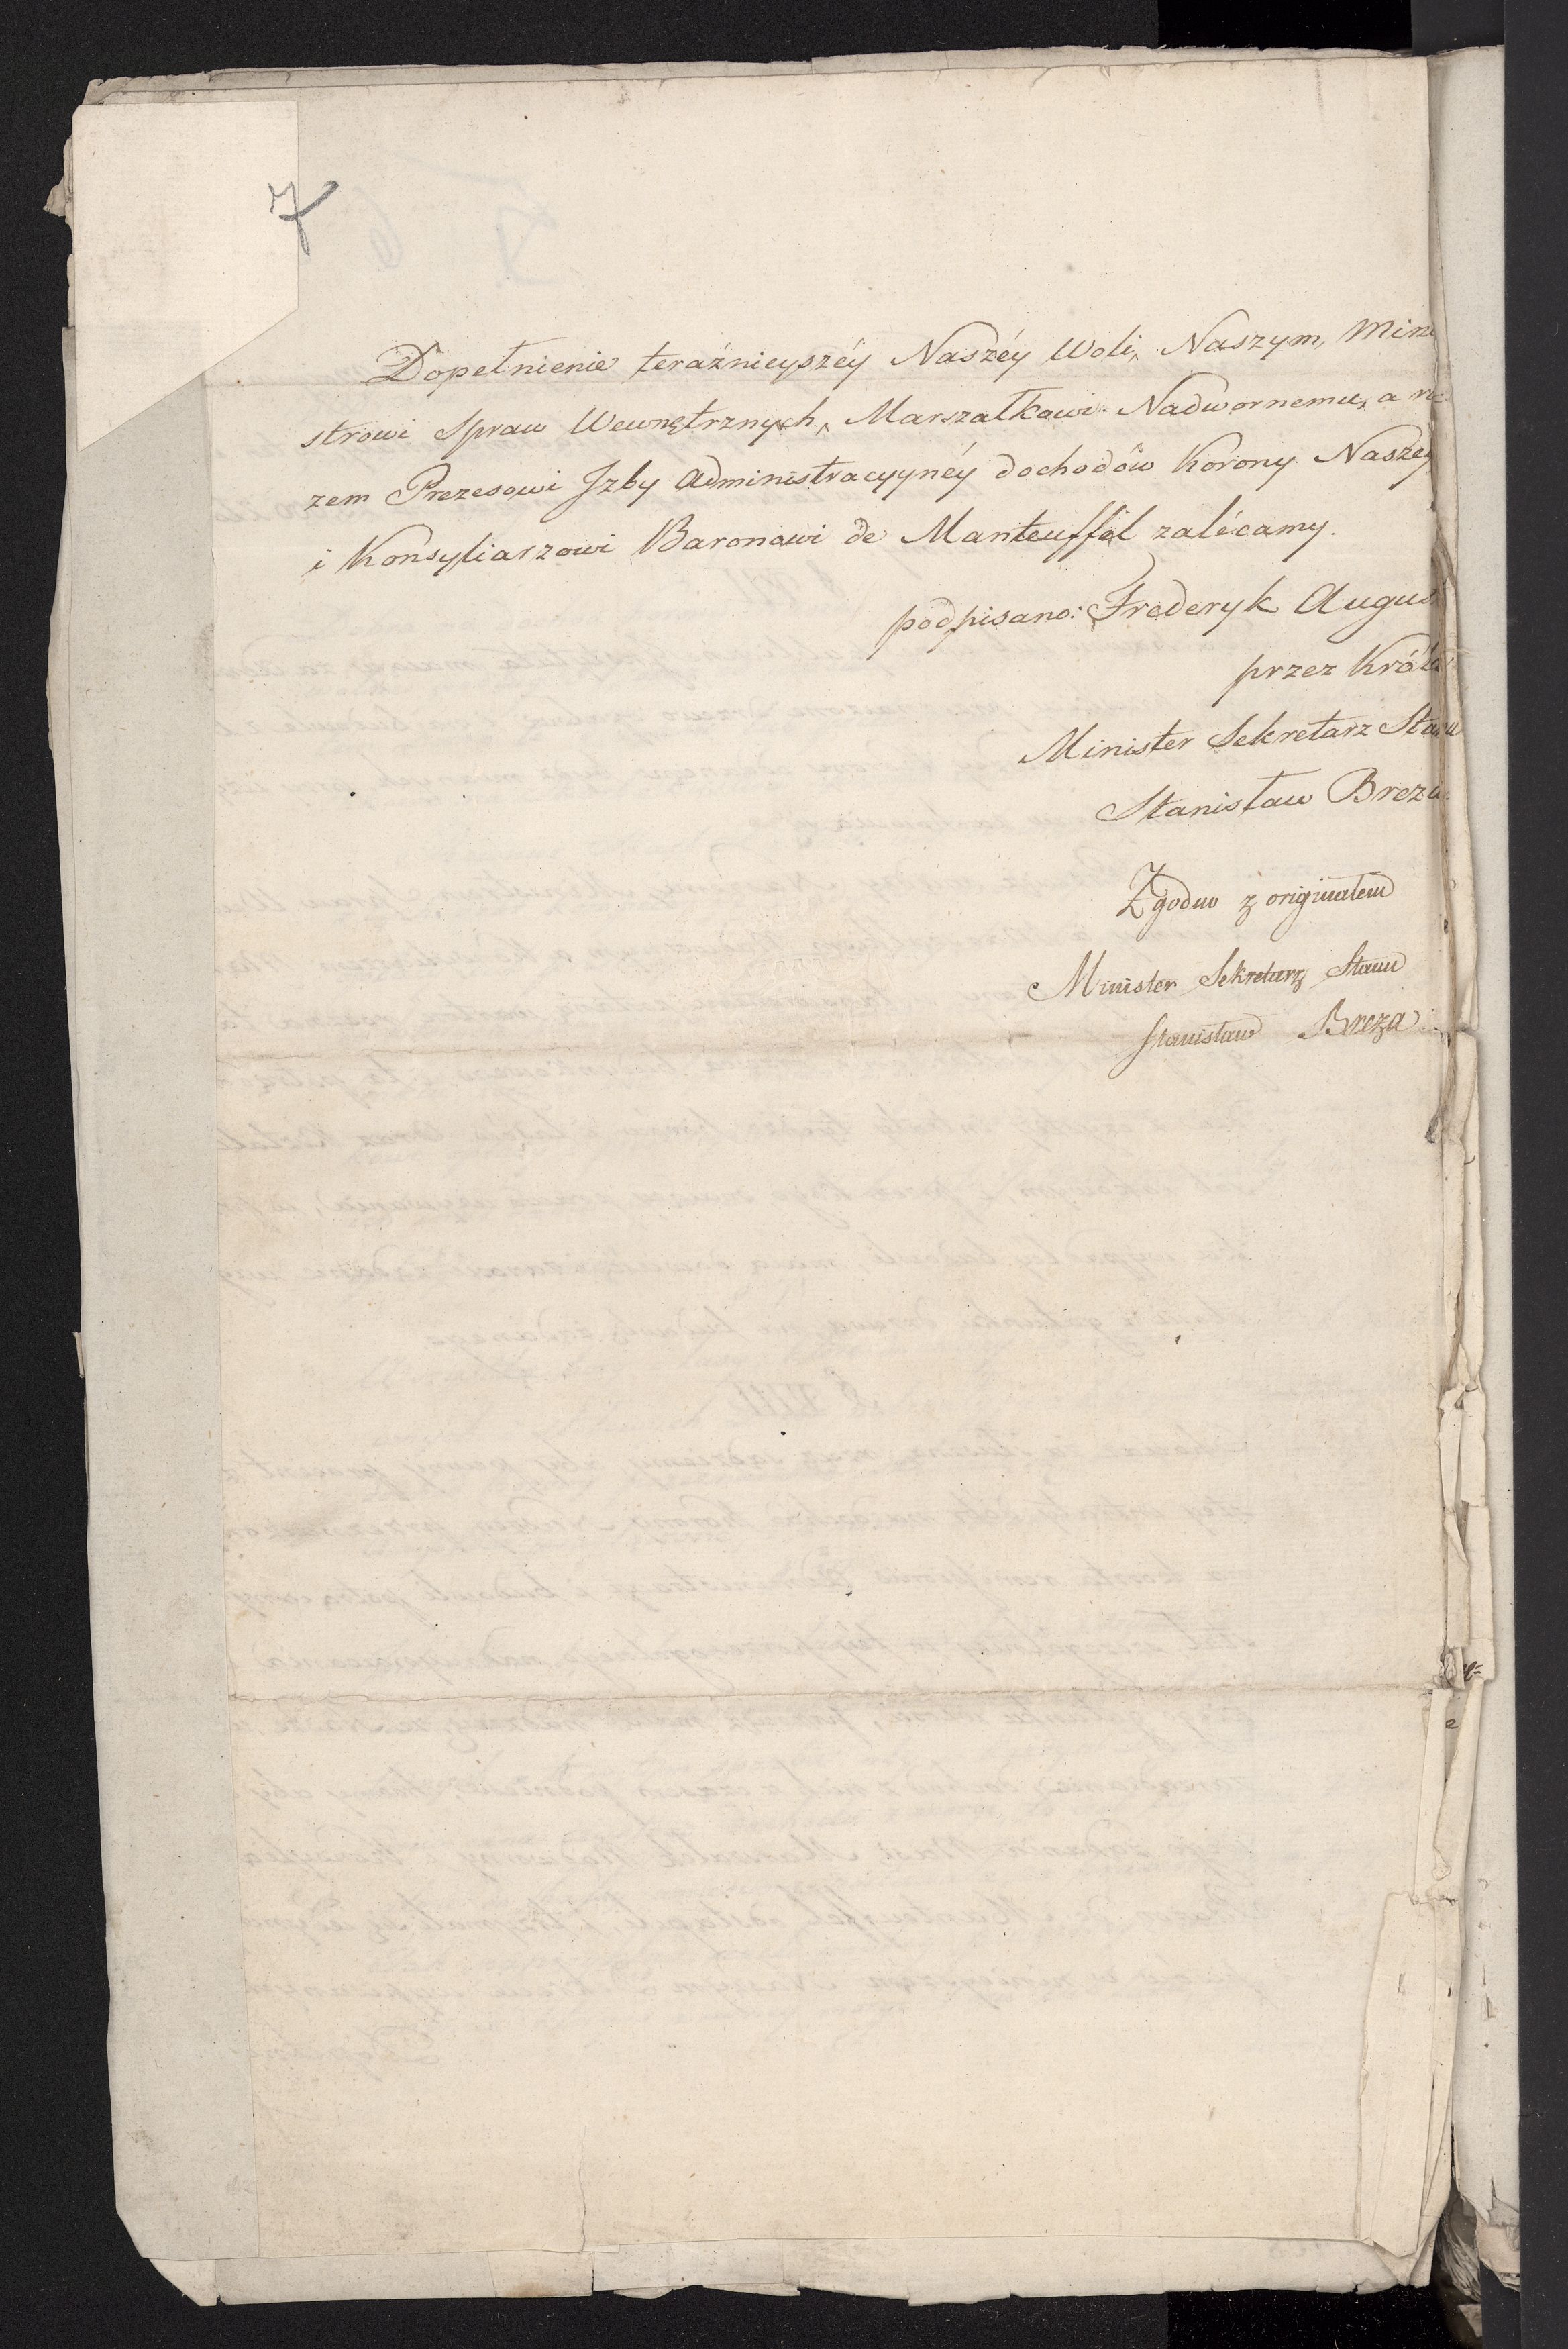 7
Dopełnienie teraźnieyszéy Naszéy Woli, Naszym, Mini
strowi Spraw Wewnętrznych, Marszałkowi Nadwornemu, a ra
zem Prezesowi Jzby Administracyynéy dochodów Korony Naszéy
i Konsyliarzowi Baronowi de Manteuffel zalécamy.
podpisano: Frederyk August
przez Króla
Minister Sekretarz Stanu
Stanisław Breza.
Zgodno z originałem
Minister Sekretarz Stanu
Stanisław Breza